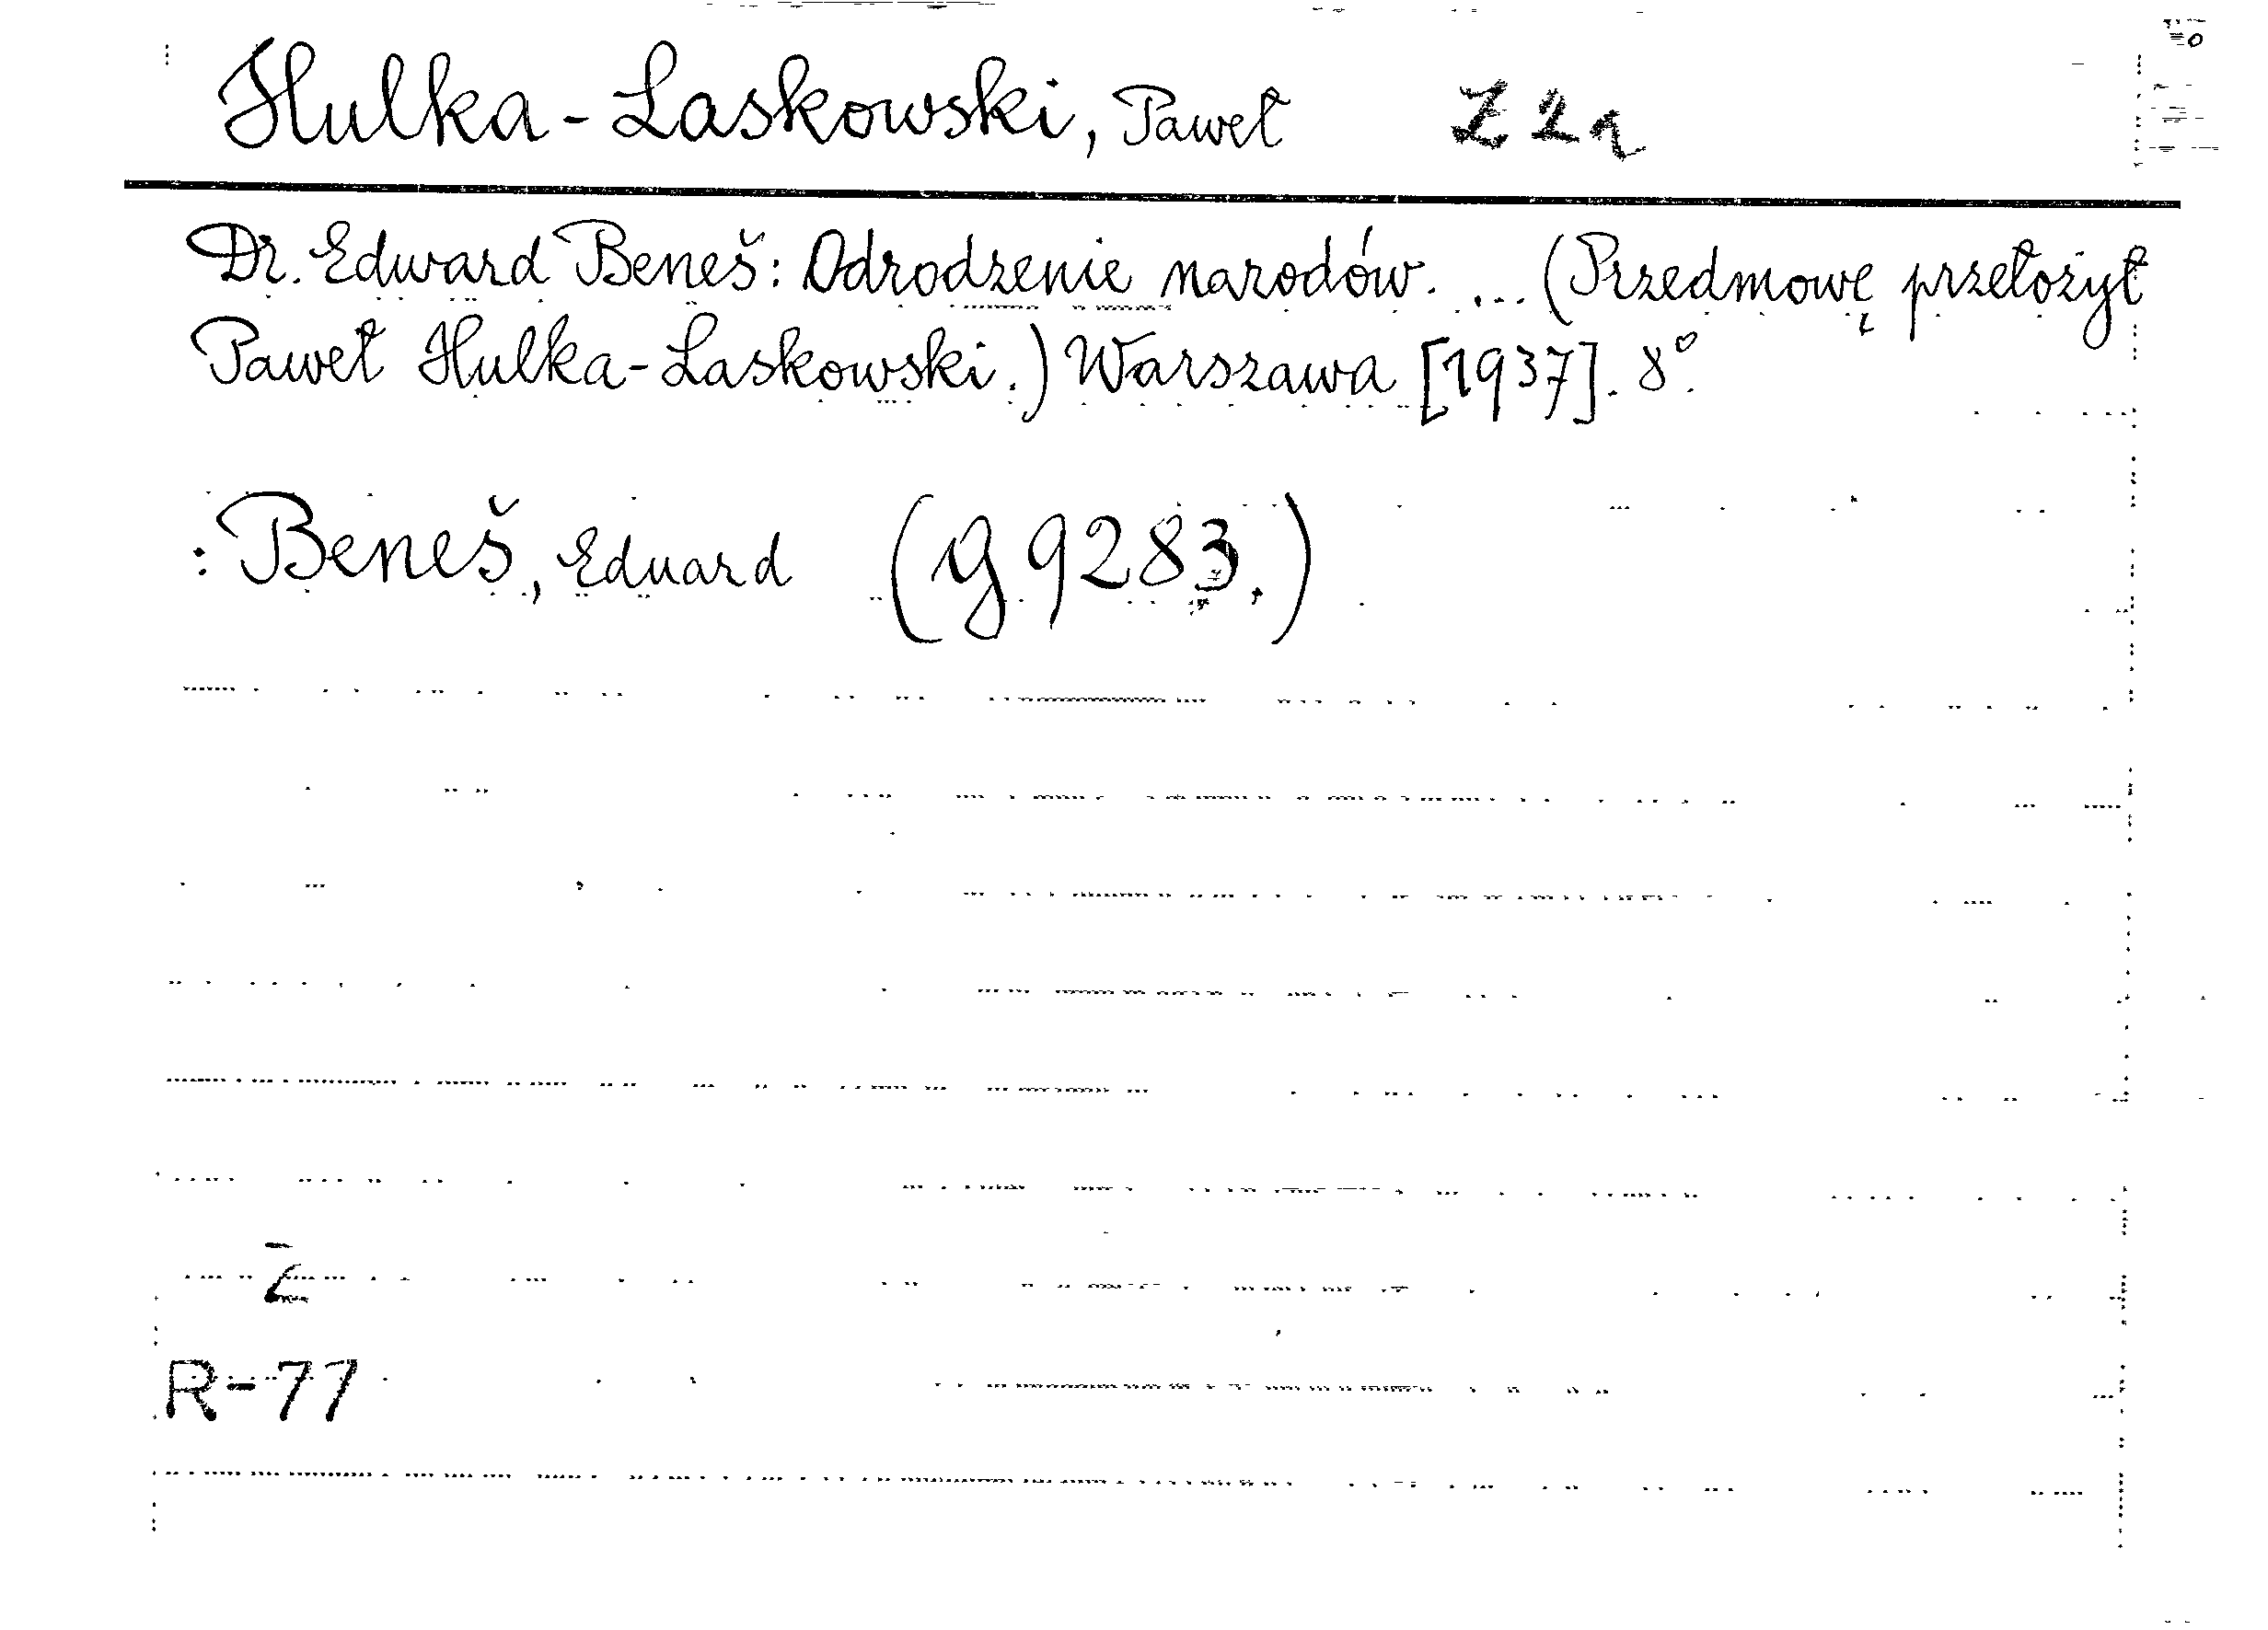 Hulka-Laskowski, Paweł
Dr. Edward Beneš: Odrodzenie narodów. ... (Przedmowę przełożył
Paweł Hulka-Laskowski.) Warszawa [1937]. 8°.
: Beneš, Eduard (g 9283.)
R-77